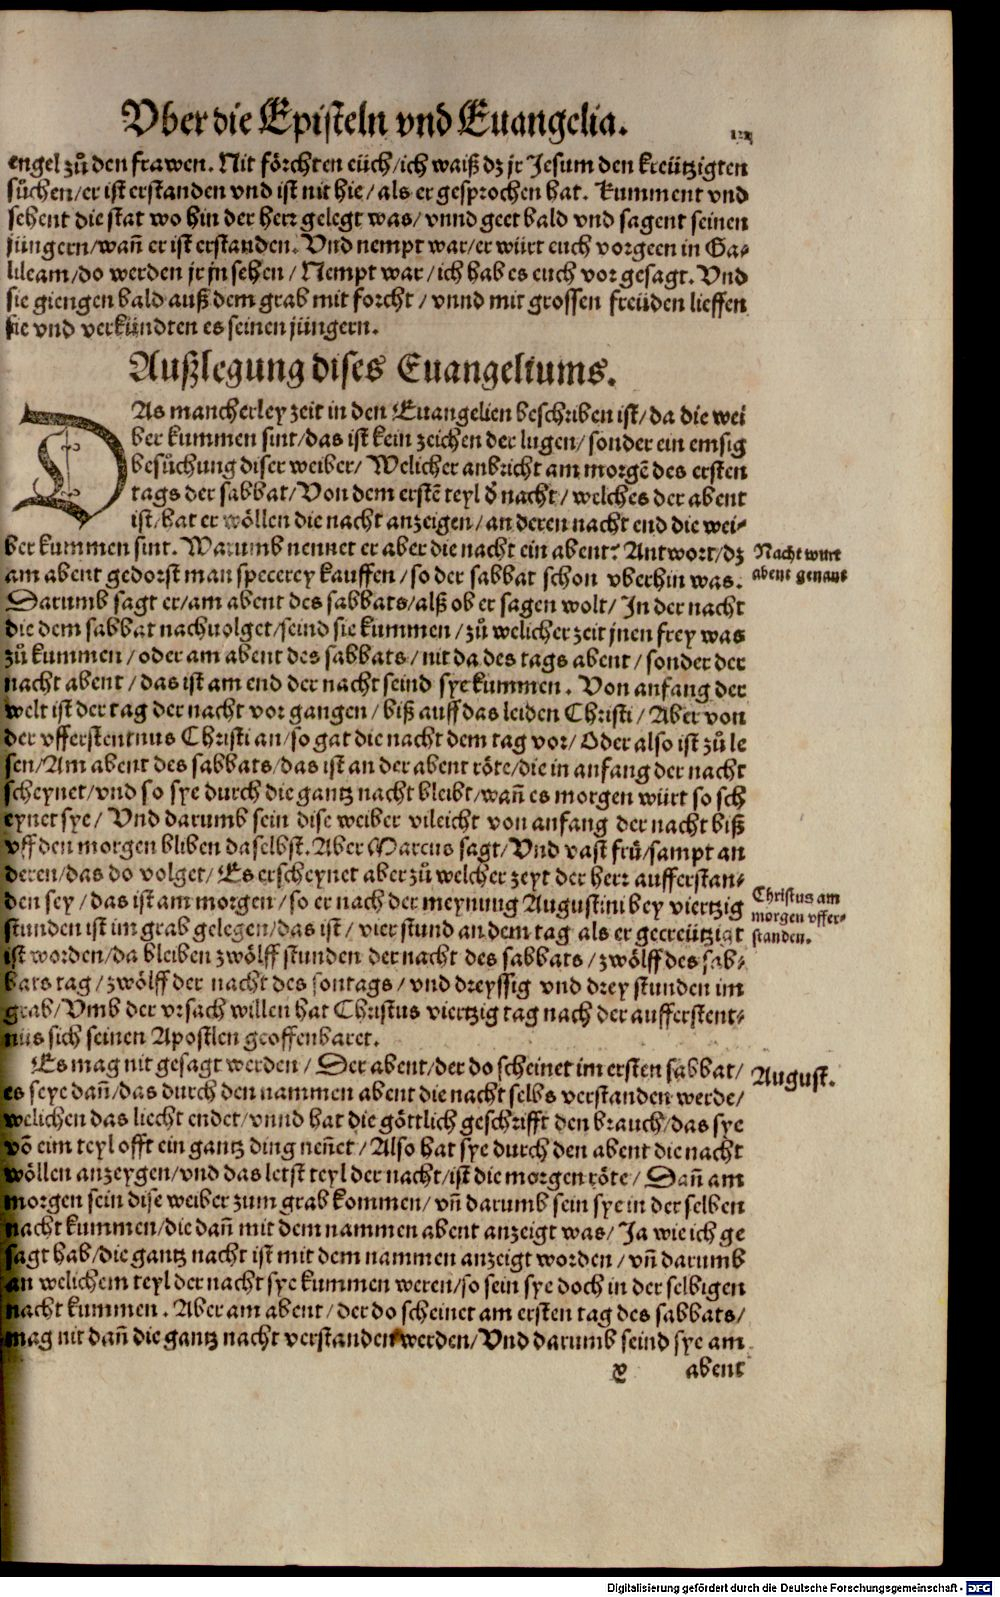 Vber die Episteln vnd Euangelia.
engel zů den frawen. Nit förchten eüch/ich waiß dz jr Jesum den kreützigten
sůchen/er ist erstanden vnd ist nit hie/als er gesprochen hat. Kumment vnd
sehent die stat wo hin der herr gelegt was/vnnd geet bald vnd sagent seinen
jüngern/wañ er ist erstanden. Vnd nempt war/er würt euch vorgeen in Ga-
lileam/do werden jr jn sehen/Nempt war/ich hab es euch vor gesagt. Vnd
sie giengen bald auß dem grab mit forcht/vnnd mit grossen freüden lieffen
sie vnd verkündten es seinen jüngern.
Außlegung dises Euangeliums.
DAs mancherley zeit in den Euangelien beschriben ist/da die wei
ber kummen sint/das ist kein zeichen der lugen/sonder ein emsig
besůchung diser weiber/Welicher anbricht am morgē des ersten
tags der sabbat/Von dem erstē teyl d̄ nacht/welches der abent
ist/hat er wöllen die nacht anzeigen/an deren nacht end die wei-
ber kummen sint. Warumb nennet er aber die nacht ein abent? Antwort/dz
am abent gedorst man specerey kauffen/so der sabbat schon vberhin was.
Nacht wurt
abent genant
Darumb sagt er/am abent des sabbats/alß ob er sagen wolt/In der nacht
die dem sabbat nachuolget/seind sie kummen/zů welicher zeit jnen frey was
zů kummen/oder am abent des sabbats/nit da des tags abent/sonder der
nacht abent/das ist am end der nacht seind sye kummen. Von anfang der
welt ist der tag der nacht vor gangen/biß auff das leiden Christi/Aber von
der vfferstentnus Christi an/so gat die nacht dem tag vor/Oder also ist zů le
sen/Am abent des sabbats/das ist an der abent röte/die in anfang der nacht
scheynet/vnd so sye durch die gantz nacht bleibt/wañ es morgen würt so sch
eynet sye/Vnd darumb sein dise weiber vileicht von anfang der nacht biß
vff den morgen bliben daselbst. Aber Marcus sagt/Vnd vast frů/sampt an
deren/das do volget/Es erscheynet aber zů welcher zeyt der herr aufferstan-
den sey/das ist am morgen/so er nach der meynung Augustini bey viertzig
stunden ist im grab gelegen/das ist/vier stund an dem tag als er gecreützigt
Christus am
morgen vffer-
standen.
ist worden/da bleiben zwölff stunden der nacht des sabbats/zwölff des sab-
bats tag/zwölff der nacht des sontags/vnd dreyssig vnd drey stunden im
grab/Vmb der vrsach willen hat Christus viertzig tag nach der aufferstent-
nus sich seinen Apostlen geoffenbaret.
Es mag nit gesagt werden/Der abent/der do scheinet im ersten sabbat/
August.
es seye dañ/das durch den nammen abent die nacht selbs verstanden werde/
welichen das liecht endet/vnnd hat die göttlich geschrifft den brauch/das sye
vō eim teyl offt ein gantz ding neñet/Also hat sye durch den abent die nacht
wöllen anzeygen/vnd das letst teyl der nacht/ist die morgen röte/Dañ am
morgen sein dise weiber zum grab kommen/vñ darumb sein sye in der selben
nacht kummen/die dañ mit dem nammen abent anzeigt was/Ja wie ich ge
sagt hab/die gantz nacht ist mit dem nammen anzeigt worden/vñ darumb
an welichem teyl der nacht sye kummen weren/so sein sye doch in der selbigen
nacht kummen. Aber am abent/der do scheinet am ersten tag des sabbats/
mag nit dañ die gantz nacht verstanden werden/Vnd darumb seind sye am
abent
Digitalisierung gefördert durch die Deutsche Forschungsgemeinschaft - DFG